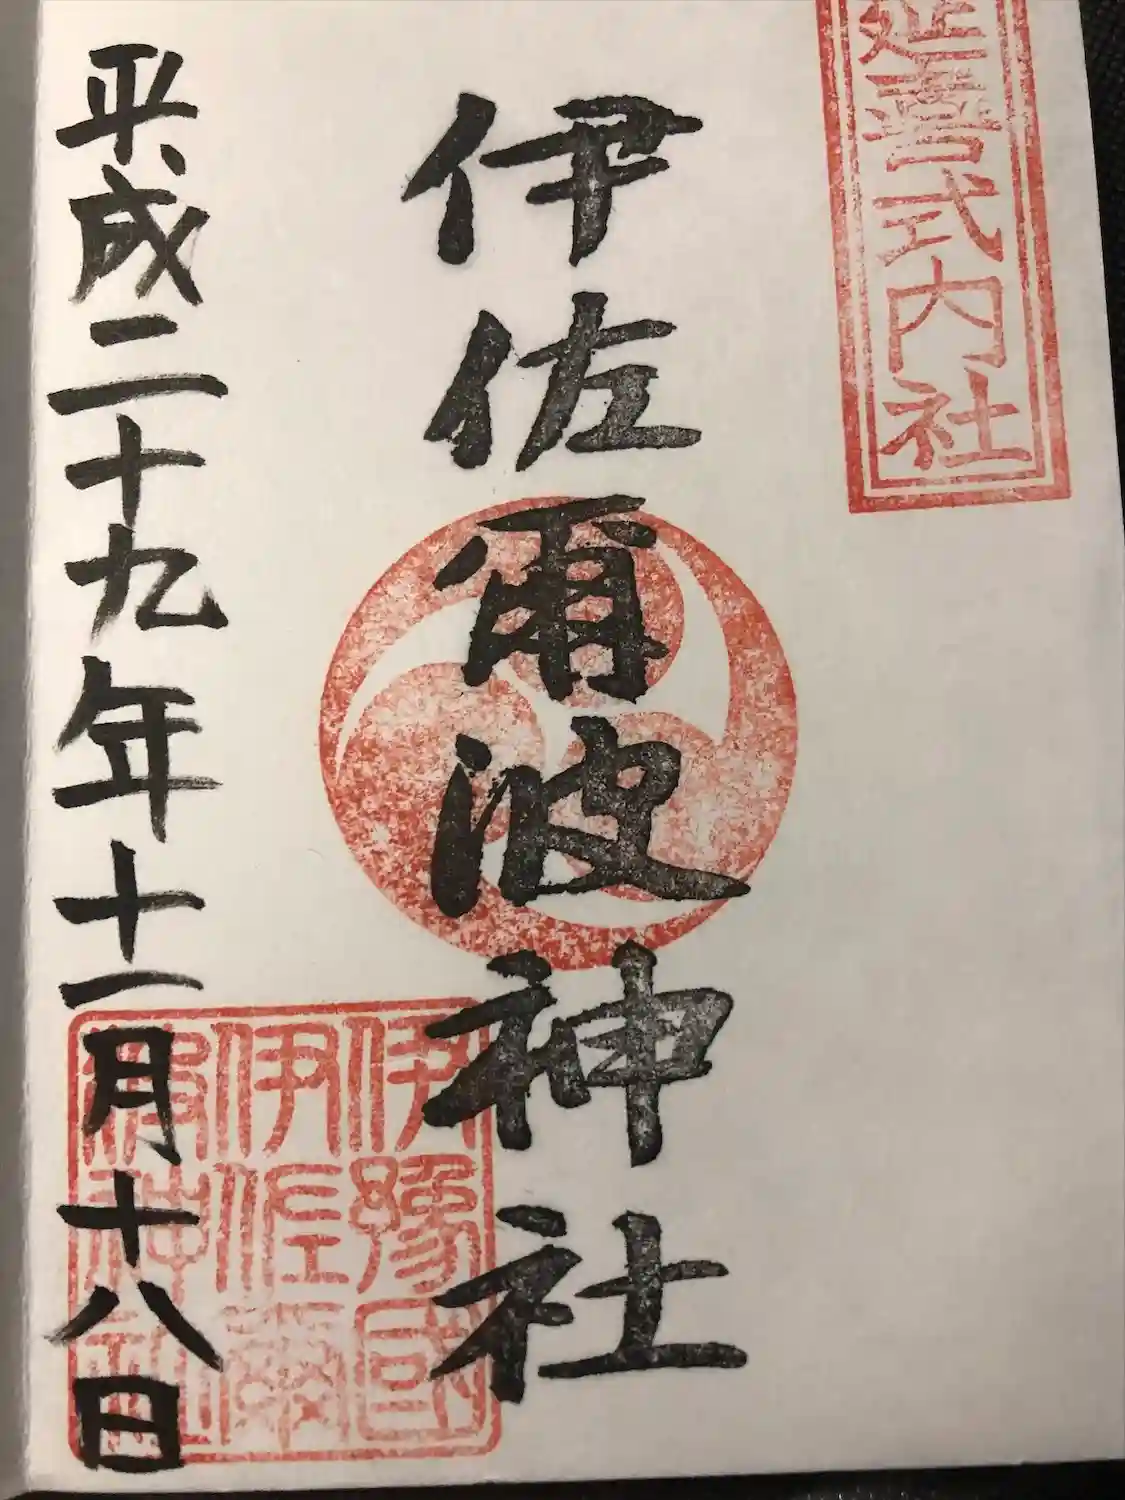 延喜式内社
伊佐爾波神社
伊豫國
伊佐爾
波神社
平成二十九年十一月十八日